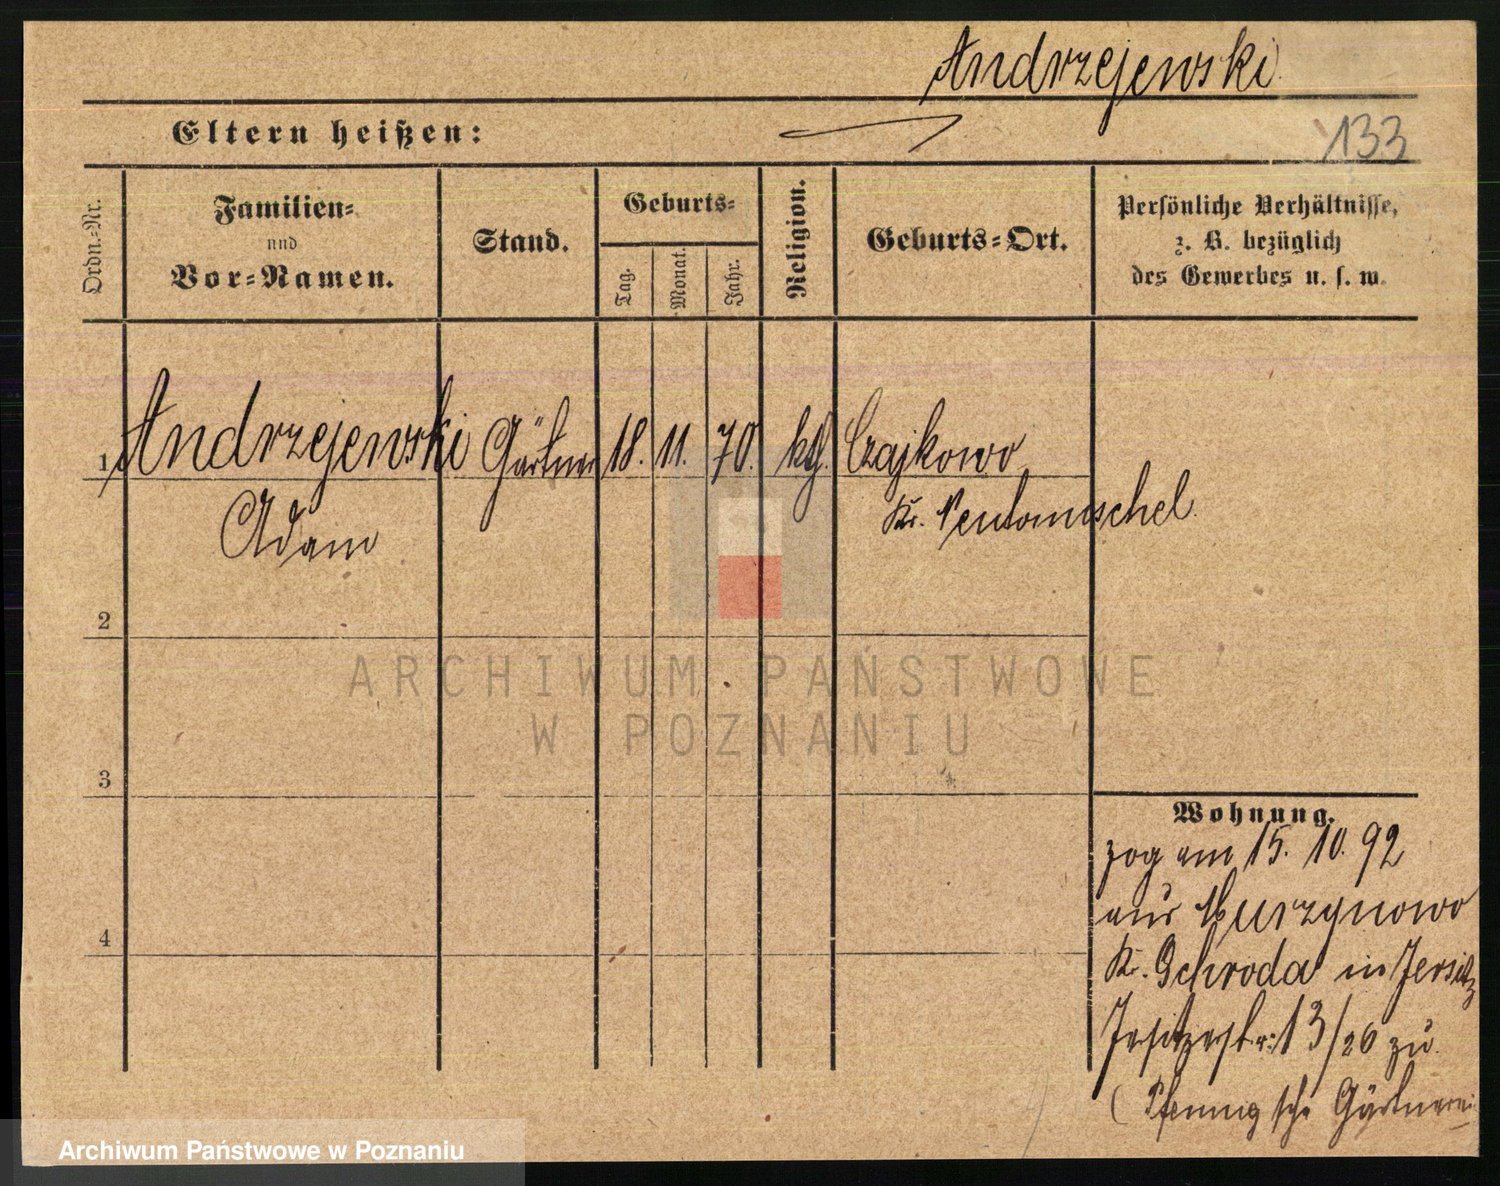 Andrzejewski
Eltern heißen:
133
Ordn.-Nr.
Familien-
und
Vor-Namen.
Stand.
Geburts-
Tag.
Monat.
Jahr.
Religion.
Geburts-Ort.
Persönliche Verhältnisse,
z. B. bezüglich
des Gewerbes u. s. w.
1 Andrzejewski Gärtner 18. 11. 70. kth. Czajkowo
Adam
Kr. Neutomischel.
2
ARCHIWUM PAŃSTWOWE
W POZNANIU
3
Wohnung.
zog am 15. 10. 92
aus Murzynowo
4
Kr. Schroda in Jersitz
13/26 zu
(Pfennig'sche Gärtnerei
Archiwum Państwowe w Poznaniu